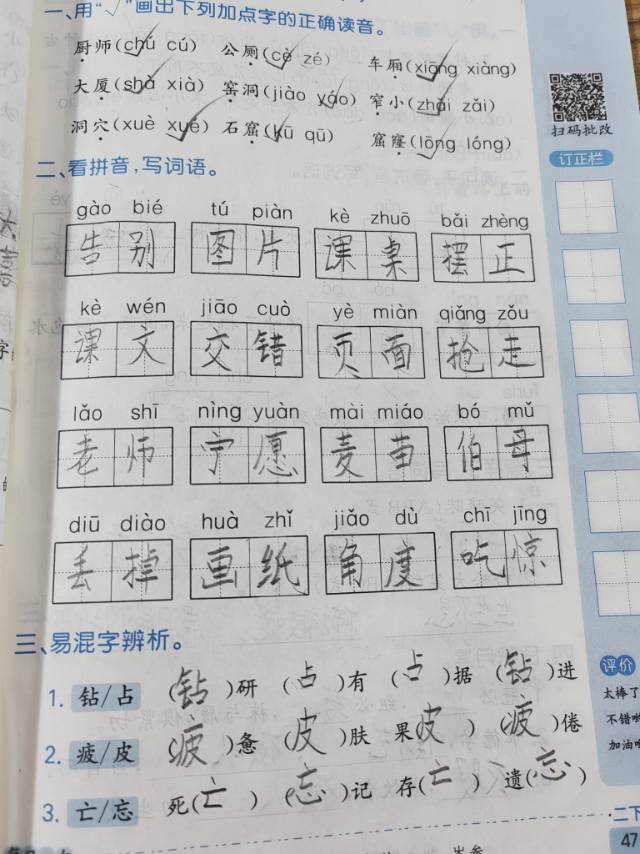 一、用“√”画出下列加点字的正确读音。
厨师(chú cú) 公厕(cè zé) 车厢(xiāng xiàng)
大厦(shà xià) 窑洞(jiào yáo) 窄小(zhǎi zǎi)
洞穴(xuè xué) 石窟(kū qū) 窟窿(lōng lóng)
扫码批改
订正栏
二、看拼音,写词语。
gào bié tú piàn kè zhuō bǎi zhèng
告别 图片 课桌 摆正
kè wén jiāo cuò yè miàn qiǎng zǒu
课文 交错 页面 抢走
lǎo shī nìng yuàn mài miáo bó mǔ
老师 宁愿 麦苗 伯母
diū diào huà zhǐ jiǎo dù chī jīng
丢掉 画纸 角度 吃惊
三、易混字辨析。
1. 钻/占 (钻)研 (占)有 (占)据 (钻)进
2. 疲/皮 (疲)惫 (皮)肤 果(皮) (疲)倦
3. 亡/忘 死(亡) (忘)记 存(亡) 遗(忘)
评价
太棒了
不错哟
加油
二下
47